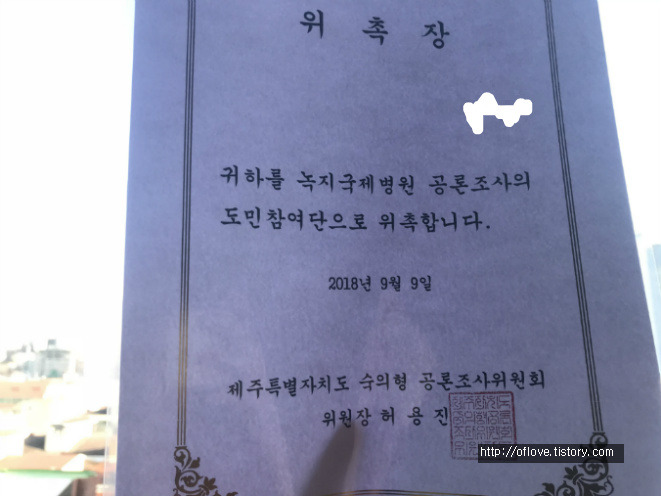 위 촉 장
귀하를 녹지국제병원 공론조사의
도민참여단으로 위촉합니다.
2018년 9월 9일
제주특별자치도 숙의형 공론조사위원회
위원장 허 용 진
http://oflove.tistory.com